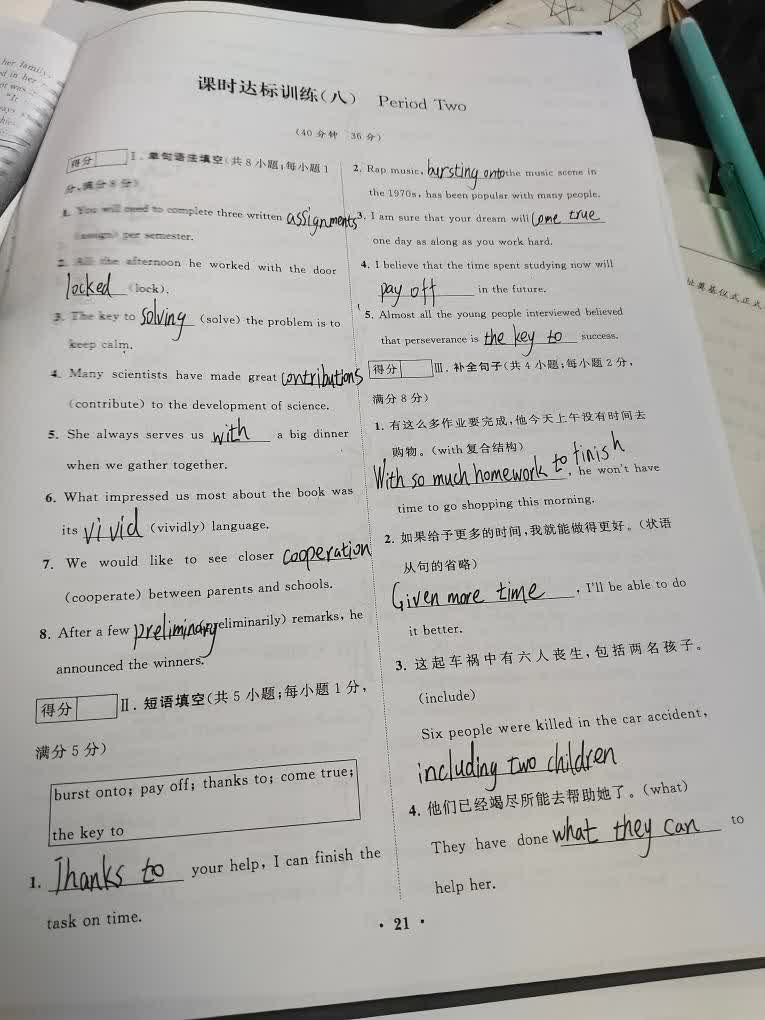 课时达标训练(八) Period Two
(40分钟 36分)
得分 Ⅰ.单句语法填空(共8小题;每小题1
分,满分8分)
1. You will need to complete three written assignments
(assign) per semester.
2. All the afternoon he worked with the door
locked (lock).
3. The key to solving (solve) the problem is to
keep calm.
4. Many scientists have made great contributions
(contribute) to the development of science.
5. She always serves us with a big dinner
when we gather together.
6. What impressed us most about the book was
its vivid (vividly) language.
7. We would like to see closer cooperation
(cooperate) between parents and schools.
8. After a few preliminary (preliminarily) remarks, he
announced the winners.
得分 Ⅱ.短语填空(共5小题;每小题1分,
满分5分)
burst onto; pay off; thanks to; come true;
the key to
1. Thanks to your help, I can finish the
task on time.
2. Rap music, bursting onto the music scene in
the 1970s, has been popular with many people.
3. I am sure that your dream will come true
one day as along as you work hard.
4. I believe that the time spent studying now will
pay off in the future.
5. Almost all the young people interviewed believed
that perseverance is the key to success.
得分 Ⅲ.补全句子(共4小题;每小题2分,
满分8分)
1. 有这么多作业要完成,他今天上午没有时间去
购物。(with复合结构)
With so much homework to finish, he won't have
time to go shopping this morning.
2. 如果给予更多的时间,我就能做得更好。(状语
从句的省略)
Given more time, I'll be able to do
it better.
3. 这起车祸中有六人丧生,包括两名孩子。
(include)
Six people were killed in the car accident,
including two children
4. 他们已经竭尽所能去帮助她了。(what)
They have done what they can to
help her.
· 21 ·
址奠基仪式正式
her family.